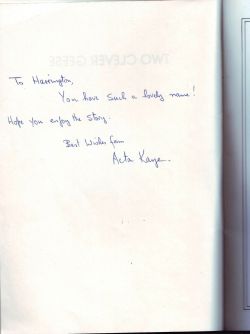 TWO CLEVER GEESE
To Harrington,
You have such a lovely name!
Hope you enjoy the story.
Best Wishes from
Acta Kaye.